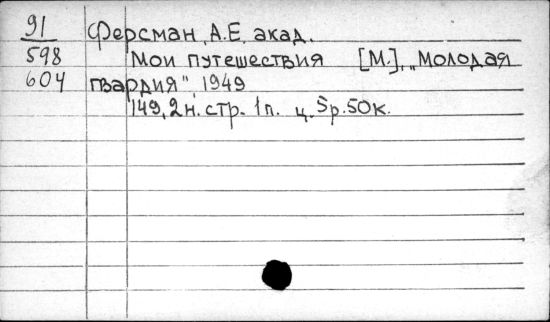 91 Ферсман, А.Е. акад.
598 Мои путешествия [М.], „Молодая
604 гвардия", 1949
149, 2 н. стр. 1 п. ц. 5 р. 50 к.